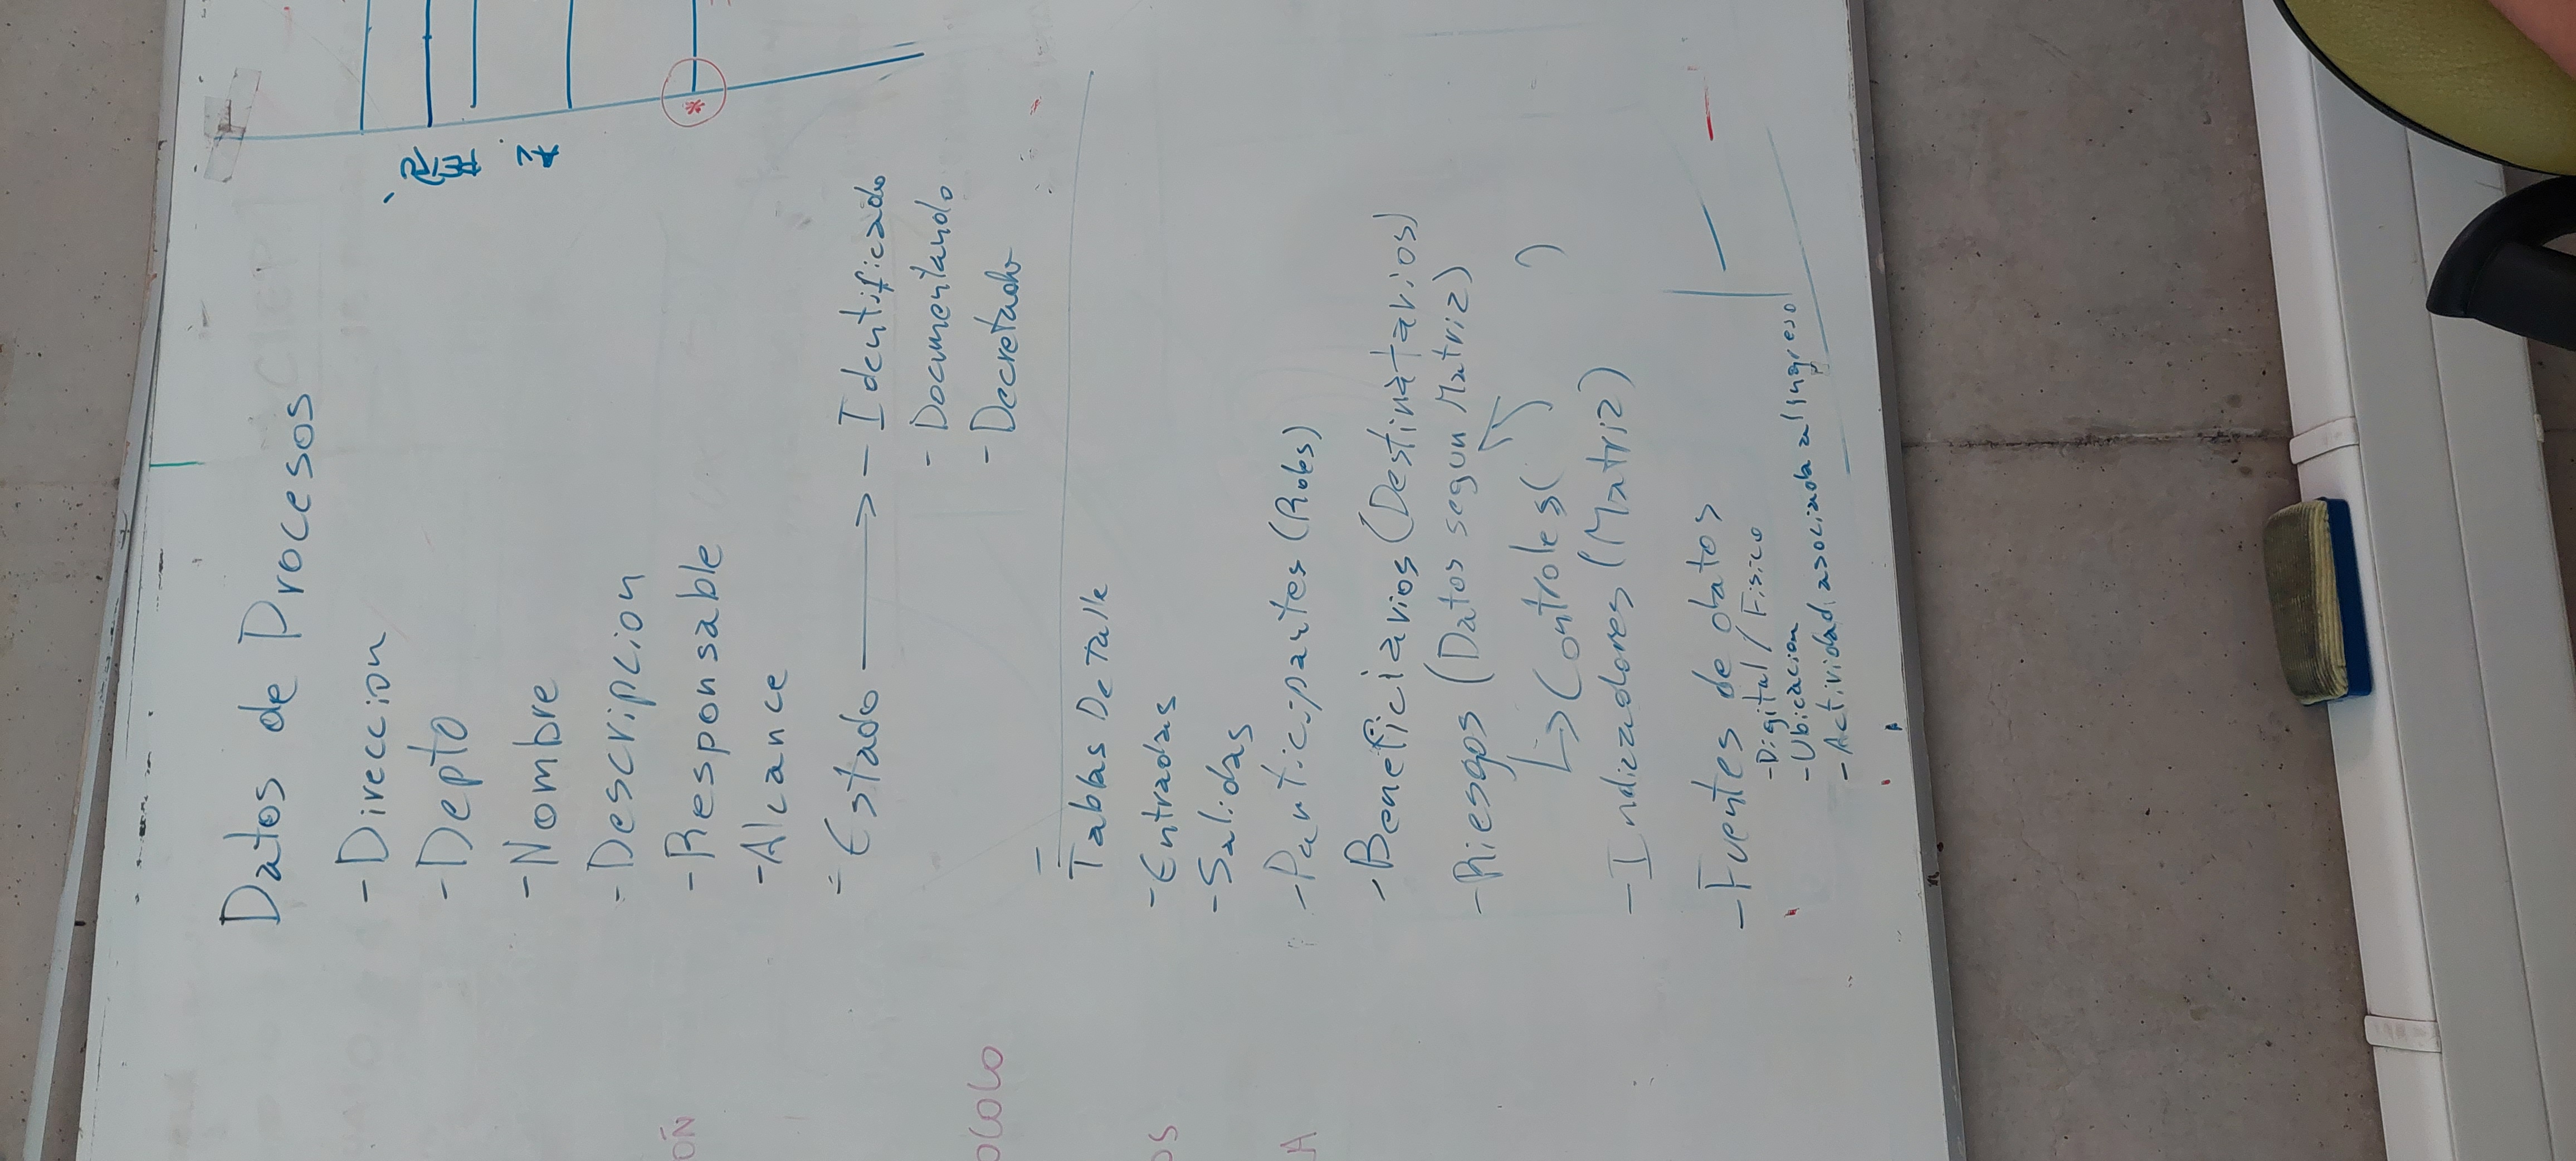 Datos de Procesos
- Direccion
- Depto
- Nombre
- Descripcion
- Responsable
- Alcance
- Estado → - Identificado
- Documentando
- Decretado
Tablas Detalle
- Entradas
- Salidas
- Participantes (Roles)
- Beneficiarios (Destinatarios)
- Riesgos (Datos segun Matriz)
↳ Controles ( )
- Indizadores (Matriz)
- Fuentes de datos
- Digital / Fisico
- Ubicacion
- Actividad asociada al ingreso
ÓN
OLO
OS
A